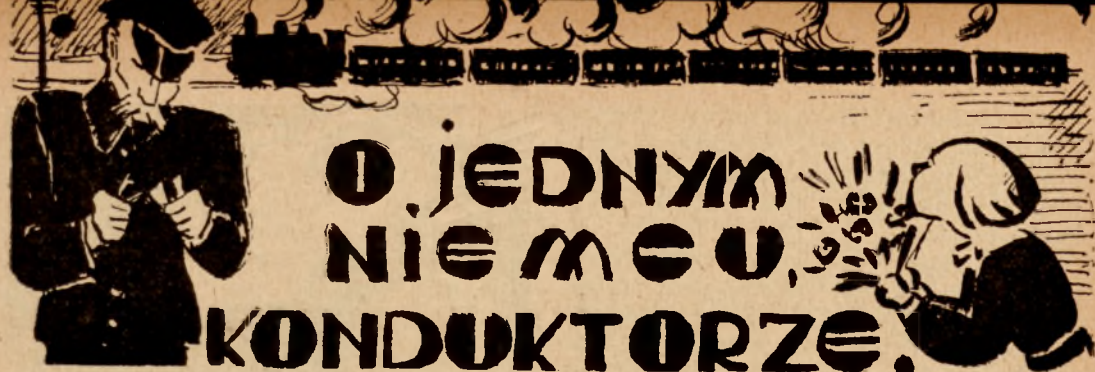 O jEDNYM
NiEMCU,
KONDUKTORZE.